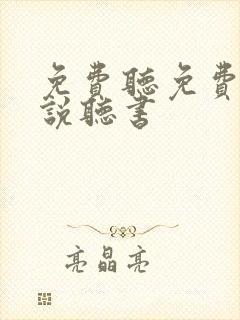 免費聽免費
說聽書
亮晶亮